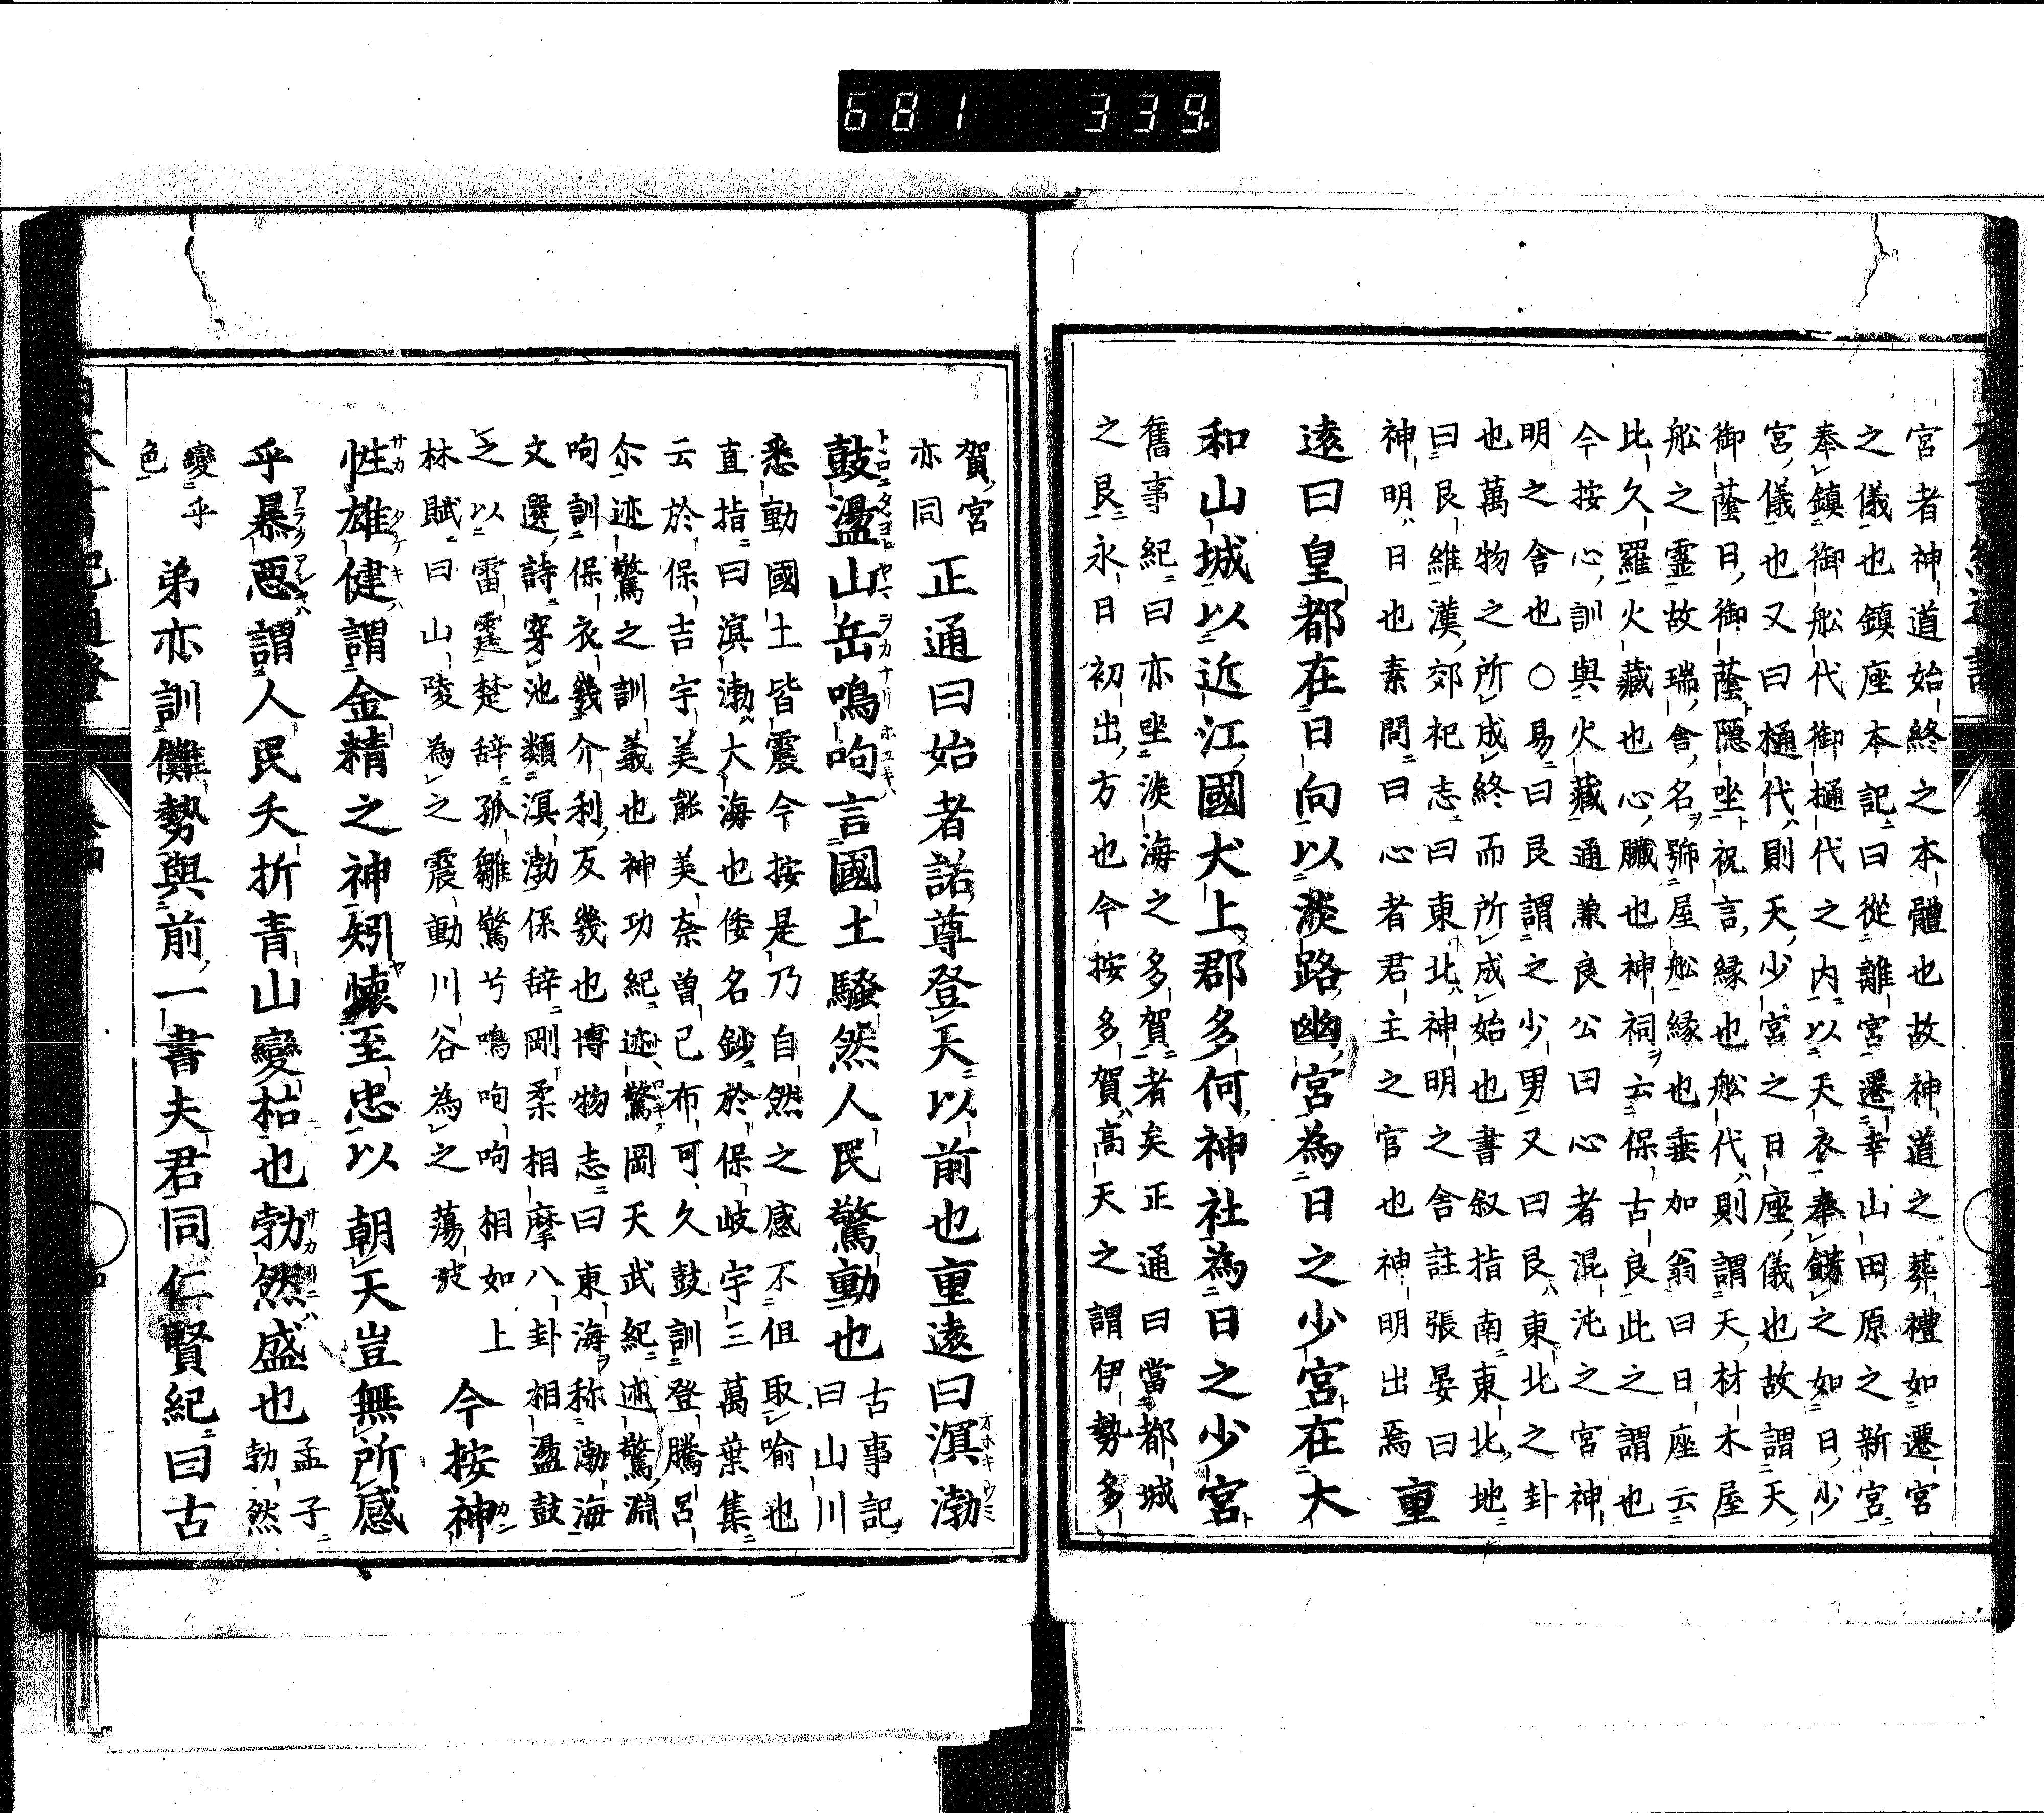 681 339.
宮者神道始終之本體也故神道之葬禮如遷宮
之儀也鎮座本記曰從離宮遷幸山田原之新宮
奉鎮御舩代御樋代之内以天衣奉餝之如日少
宮儀也又曰樋代則天少宮之日座儀也故謂天
御蔭日御蔭隱坐祝言縁也舩代則謂天材木屋
舩之靈故瑞舎名號屋舩縁也垂加翁曰日座云
比久羅火藏也心臓也神祠云保古良此之謂也
今按心訓與火藏通兼良公曰心者混沌之宮神
明之舎也○易曰艮謂之少男又曰艮東北之卦
也萬物之所成終而所成始也書叙指南東北地
曰艮維漢郊祀志曰東北神明之舎註張晏曰
神明日也素問曰心者君主之官也神明出焉 重
遠曰皇都在日向以淡路幽宮為日之少宮在大
和山城以近江國犬上郡多何神社為日之少宮
舊事紀曰亦坐淡海之多賀者矣正通曰當都城
之艮永日初出方也今按多賀高天之謂伊勢多
賀宮
亦同 正通曰始者諾尊登天以前也重遠曰溟渤
鼓盪山岳鳴呴言國土騷然人民驚動也 古事記
曰山川
悉動國土皆震今按是乃自然之感不但取喻也
直指曰溟渤大海也倭名鈔於保岐宇三萬葉集
云於保吉宇美能美奈曽己布可久鼓訓登騰呂
尒迹驚之訓義也神功紀迹驚岡天武紀迹驚淵
呴訓保衣幾介利反幾也博物志曰東海称渤海
文選詩穿池類溟渤係辞剛柔相摩八卦相盪鼓
之以雷霆楚辞孤雛驚兮鳴呴呴相如上
林賦曰山陵為之震動川谷為之蕩波 今按神
性雄健謂金精之神矧懐至忠以朝天豈無所感
乎暴惡謂人民夭折青山變枯也勃然盛也 孟子
勃然
變乎
色 弟亦訓儺勢與前一書夫君同仁賢紀曰古